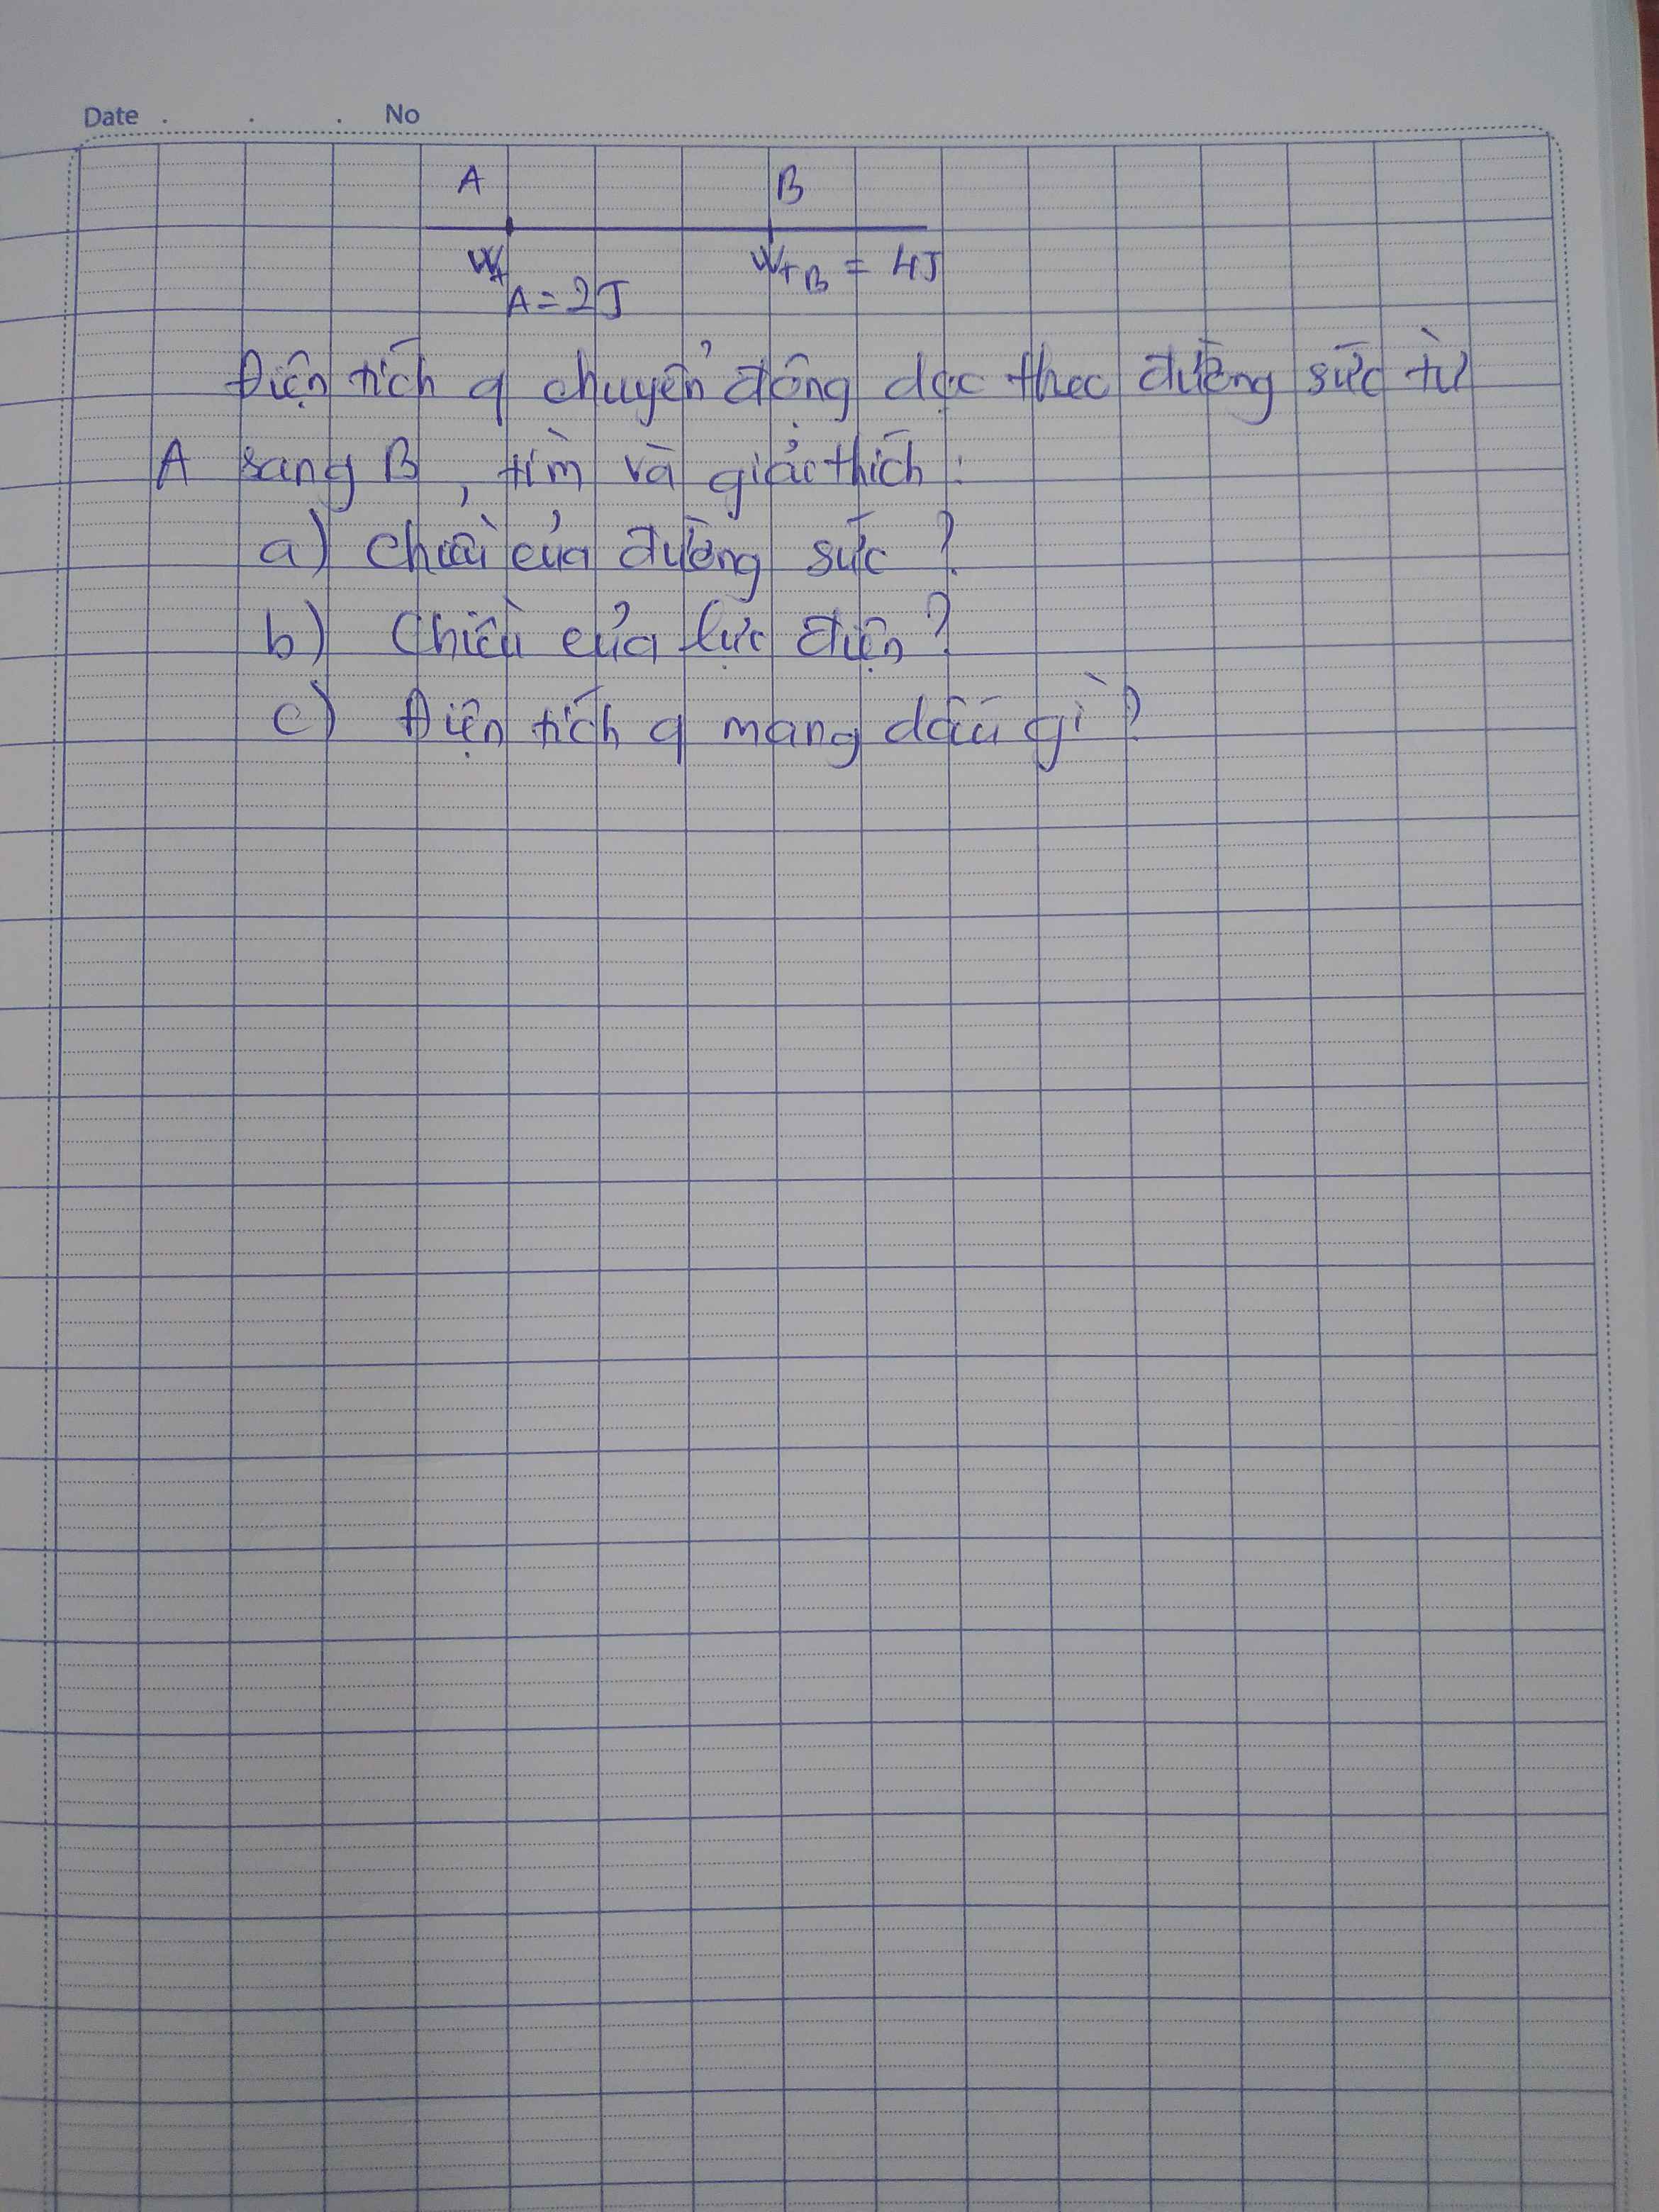 Date . . . No
A B
Wt A = 2J WtB = 4J
Điện tích q chuyển động dọc theo đường sức từ
A sang B, tìm và giải thích:
a) Chiều của đường sức?
b) Chiều của lực điện?
c) Điện tích q mang dấu gì?